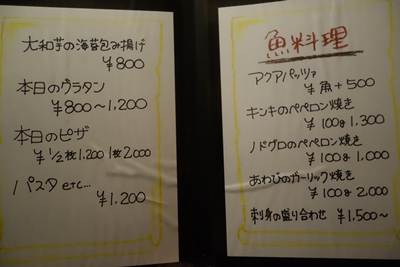 大和芋の海苔包み揚げ
¥800
本日のグラタン
¥800〜1,200
本日のピザ
¥1/2枚1,200 1枚2,000
パスタetc...
¥1,200
魚料理
アクアパッツァ
¥魚+500
キンキのペペロン焼き
¥100g1,300
ノドグロのペペロン焼き
¥100g1,000
あわびのガーリック焼き
¥100g2,000
刺身の盛り合わせ ¥1,500〜